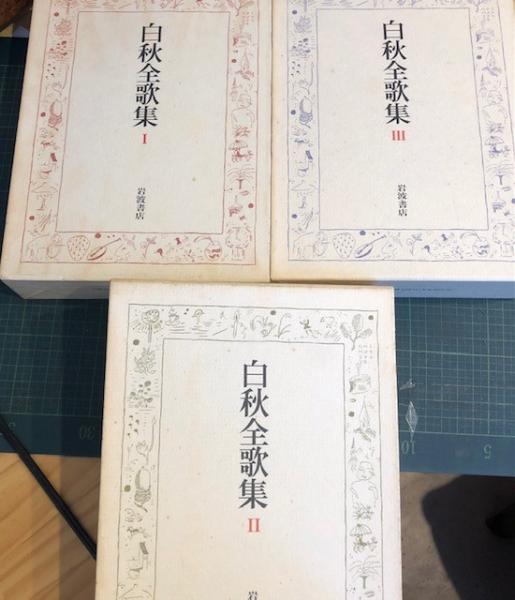 白秋全歌集
I
岩波書店
白秋全歌集
III
岩波書店
白秋全歌集
II
岩
30
10
5